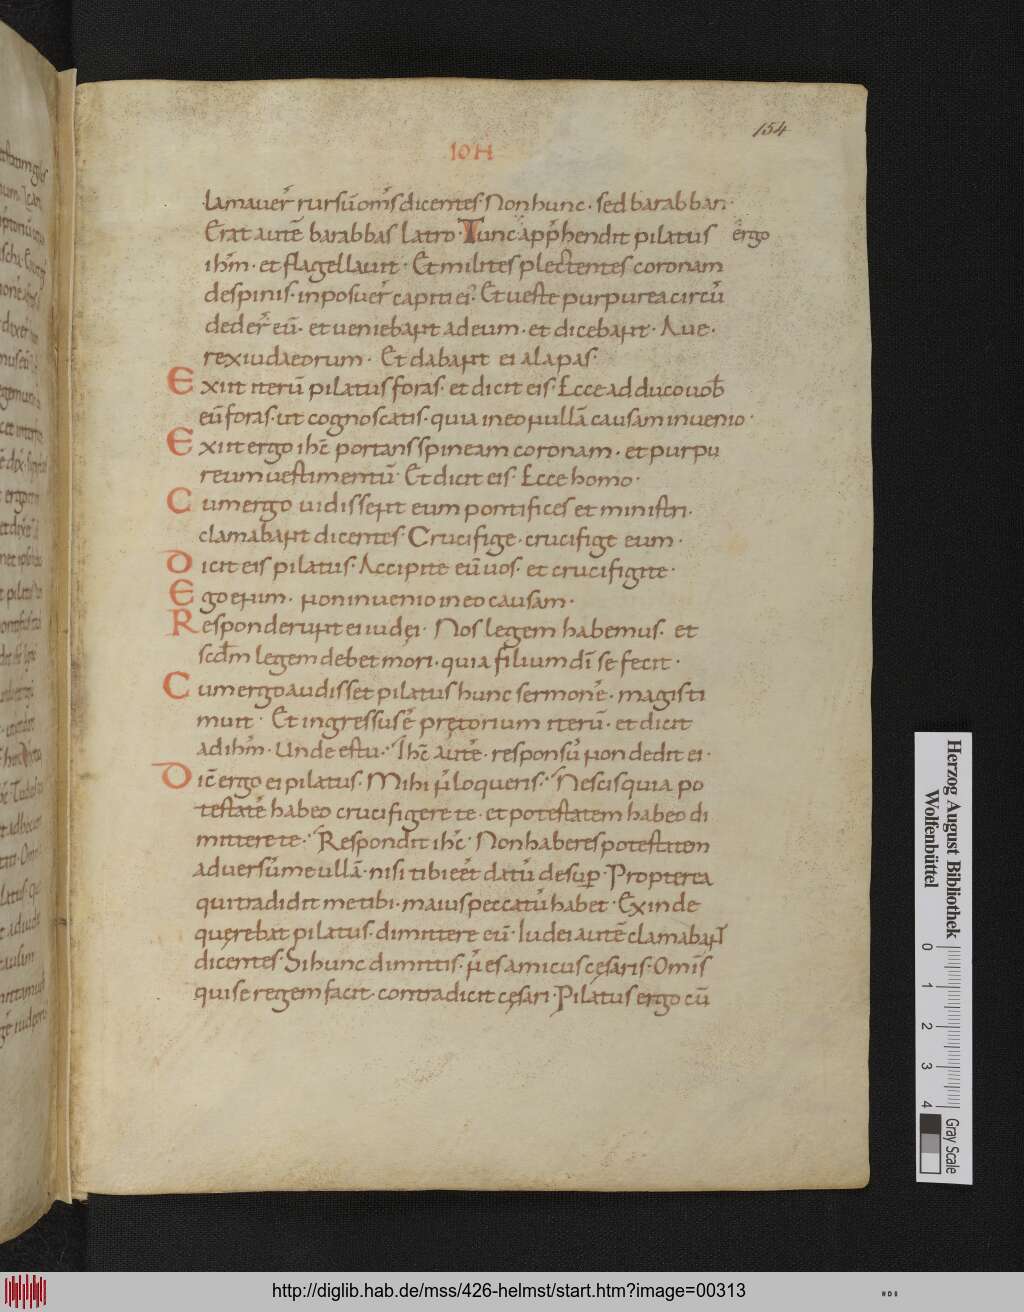 154
IOH
lamauer̄ rursū om̄s dicentes· Non hunc· sed barabban·
Erat autē barabbas latro· Tunc app̄hendit pilatus ergo
ihm̄· et flagellauit· Et milites plectentes coronam
de spinis· inposuer̄ capiti ei'· Et ueste purpurea circū
deder̄ eū· et ueniebant ad eum· et dicebant· Aue·
rex iudaeorum· Et dabant ei alapas·
Exiit iterū pilatus foras· et dicit eis· Ecce adduco uob̄
eū foras· ut cognoscatis· quia in eo nullā causam inuenio·
Exiit ergo ihc̄ portans spineam coronam· et purpu
reum uestimentū· Et dicit eis· Ecce homo·
Cum ergo uidissent eum pontifices et ministri·
clamabant dicentes· Crucifige· crucifige eum·
Dicit eis pilatus· Accipite eū uos· et crucifigite·
Ego enim· non inuenio in eo causam·
Responderunt ei iudęi· Nos legem habemus· et
scd̄m legem debet mori· quia filium dī se fecit·
Cum ergo audisset pilatus hunc sermonē· magis ti
muit· Et ingressus ē prętorium iterū· et dicit
ad ihm̄· Unde es tu· Ihc̄ autē· responsū non dedit ei·
Dic̄ ergo ei pilatus· Mihi n̄ loqueris· Nescis quia po
testatē habeo crucifigere te· et potestatem habeo di
mittere te· Respondit ihc̄· Non haberes potestatem
aduersū me ullā· nisi tibi eēt datū desup̄· Propterea
qui tradidit me tibi· maius peccatū habet· Exinde
querebat pilatus· dimittere eū· Iudei autē clamabant
dicentes· Si hunc dimittis· n̄ es amicus cęsaris· Om̄is
qui se regem facit· contradicit cęsari· Pilatus ergo cū
Herzog August Bibliothek
Wolfenbüttel
0 1 2 3 4
Gray Scale
http://diglib.hab.de/mss/426-helmst/start.htm?image=00313